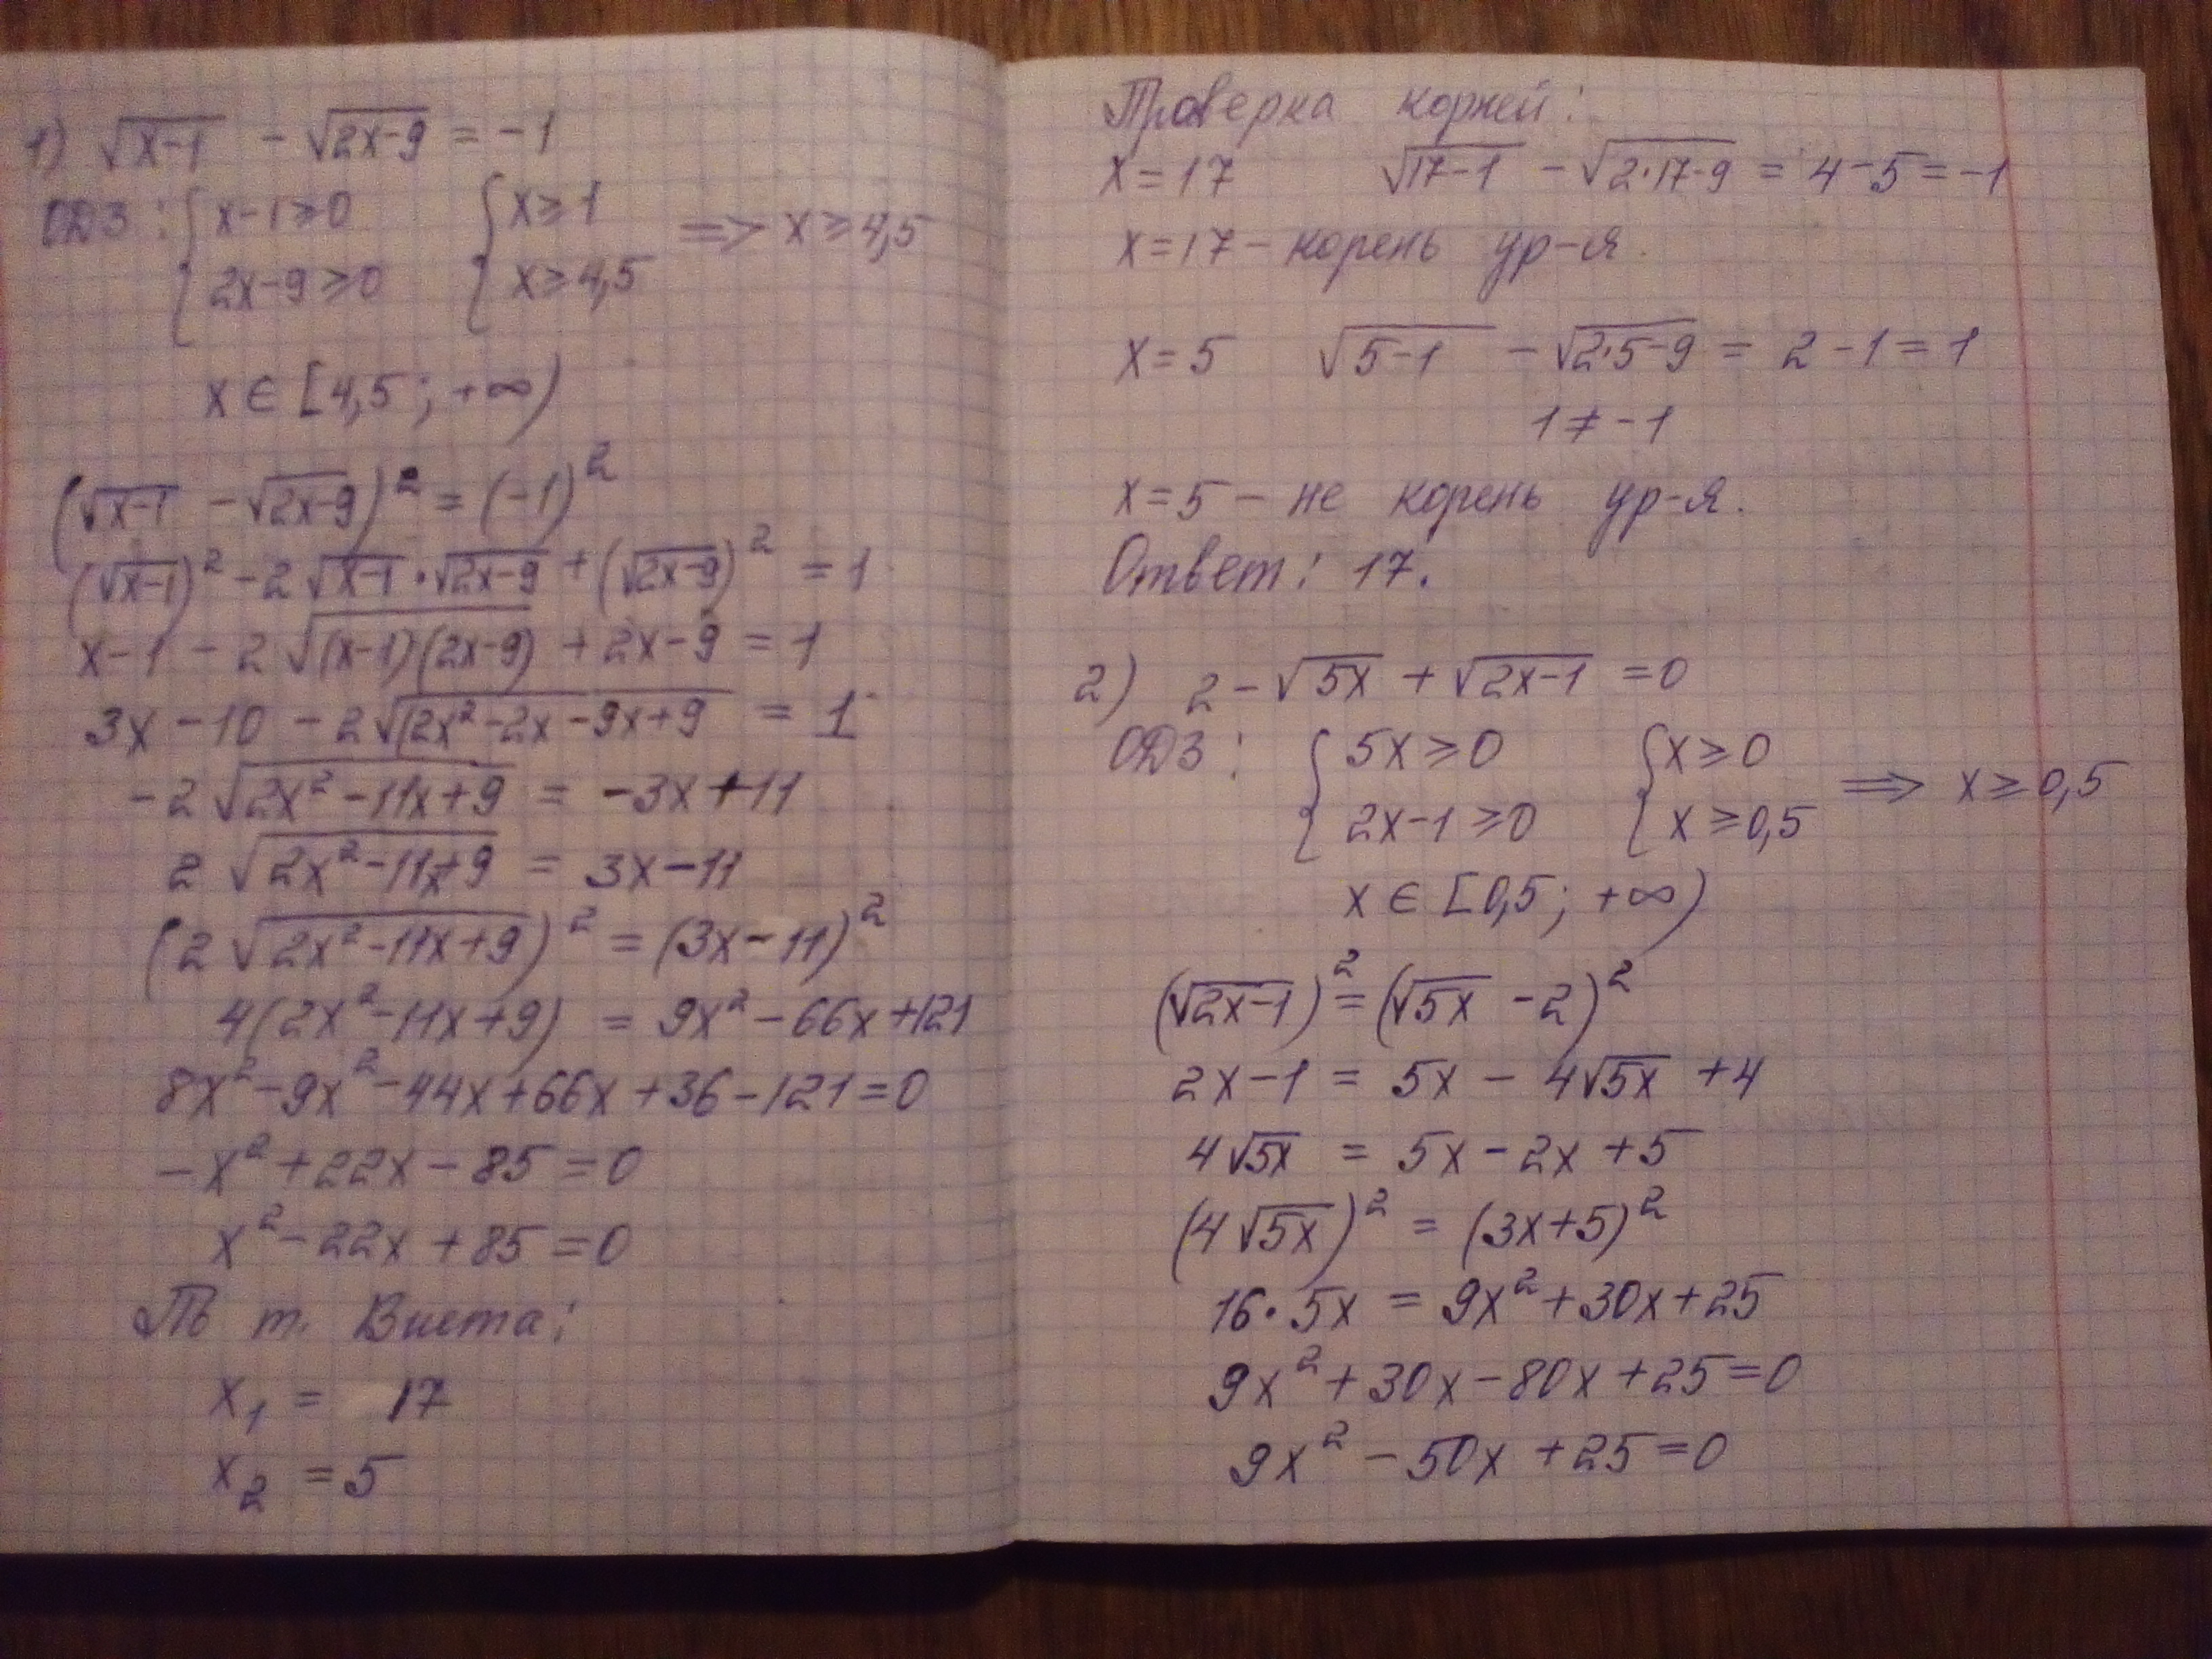 1) √(x-1) - √(2x-9) = -1
ОДЗ: { x-1≥0 { x≥1 => x≥4,5
{ 2x-9≥0 { x≥4,5
x ∈ [4,5; +∞)
(√(x-1) - √(2x-9))² = (-1)²
(√(x-1))² - 2√(x-1)·√(2x-9) + (√(2x-9))² = 1
x-1 - 2√((x-1)(2x-9)) + 2x-9 = 1
3x - 10 - 2√(2x²-2x-9x+9) = 1
-2√(2x²-11x+9) = -3x+11
2√(2x²-11x+9) = 3x-11
(2√(2x²-11x+9))² = (3x-11)²
4(2x²-11x+9) = 9x²-66x+121
8x²-9x²-44x+66x+36-121=0
-x²+22x-85=0
x²-22x+85=0
По т. Виета:
x₁ = 17
x₂ = 5
Проверка корней:
x=17 √(17-1) - √(2·17-9) = 4-5=-1
x=17 - корень ур-я.
x=5 √(5-1) - √(2·5-9) = 2-1=1
1≠-1
x=5 - не корень ур-я.
Ответ: 17.
2) 2 - √(5x) + √(2x-1) = 0
ОДЗ: { 5x≥0 { x≥0 => x≥0,5
{ 2x-1≥0 { x≥0,5
x ∈ [0,5; +∞)
(√(2x-1))² = (√(5x) - 2)²
2x-1 = 5x - 4√(5x) + 4
4√(5x) = 5x-2x+5
(4√(5x))² = (3x+5)²
16·5x = 9x²+30x+25
9x²+30x-80x+25=0
9x²-50x+25=0